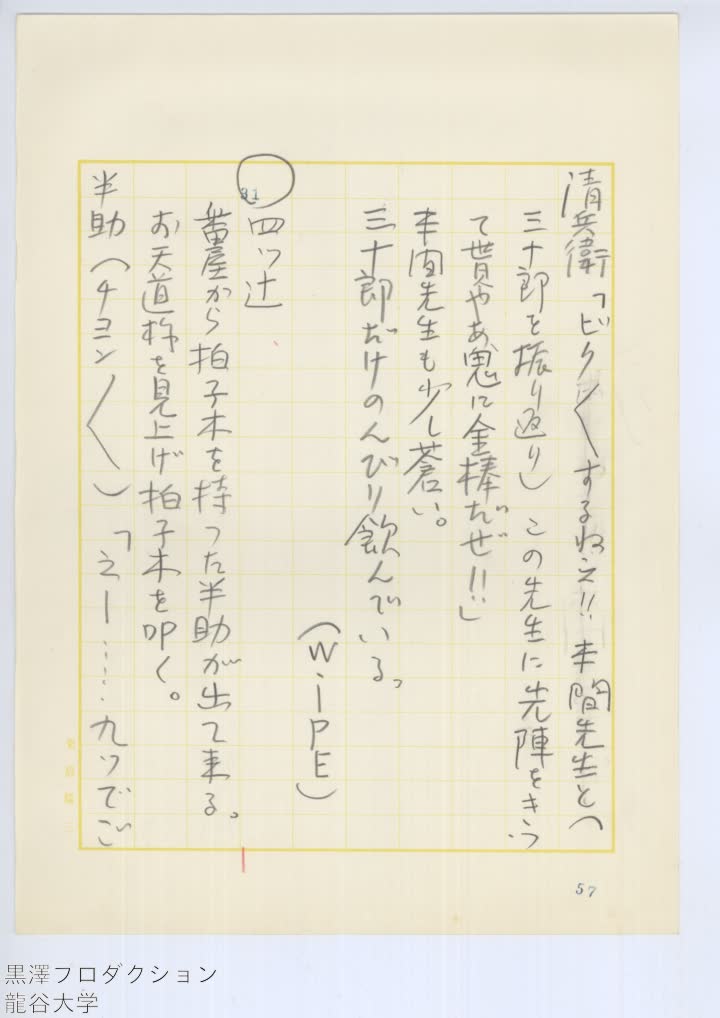 清兵衛「ビク〳〵するねえ!! 本間先生と(
三十郎を振り返り)この先生に先陣をきつ
て貰やあ鬼に金棒だぜ!!」
本間先生も少し蒼い。
三十郎だけのんびり飲んでいる。
(WiPE)
31
四ツ辻
番屋から拍子木を持った半助が出て来る。
お天道様を見上げ拍子木を叩く。
半助(チョン〳〵)「えー……九ツでご
57
黒澤プロダクション
龍谷大学